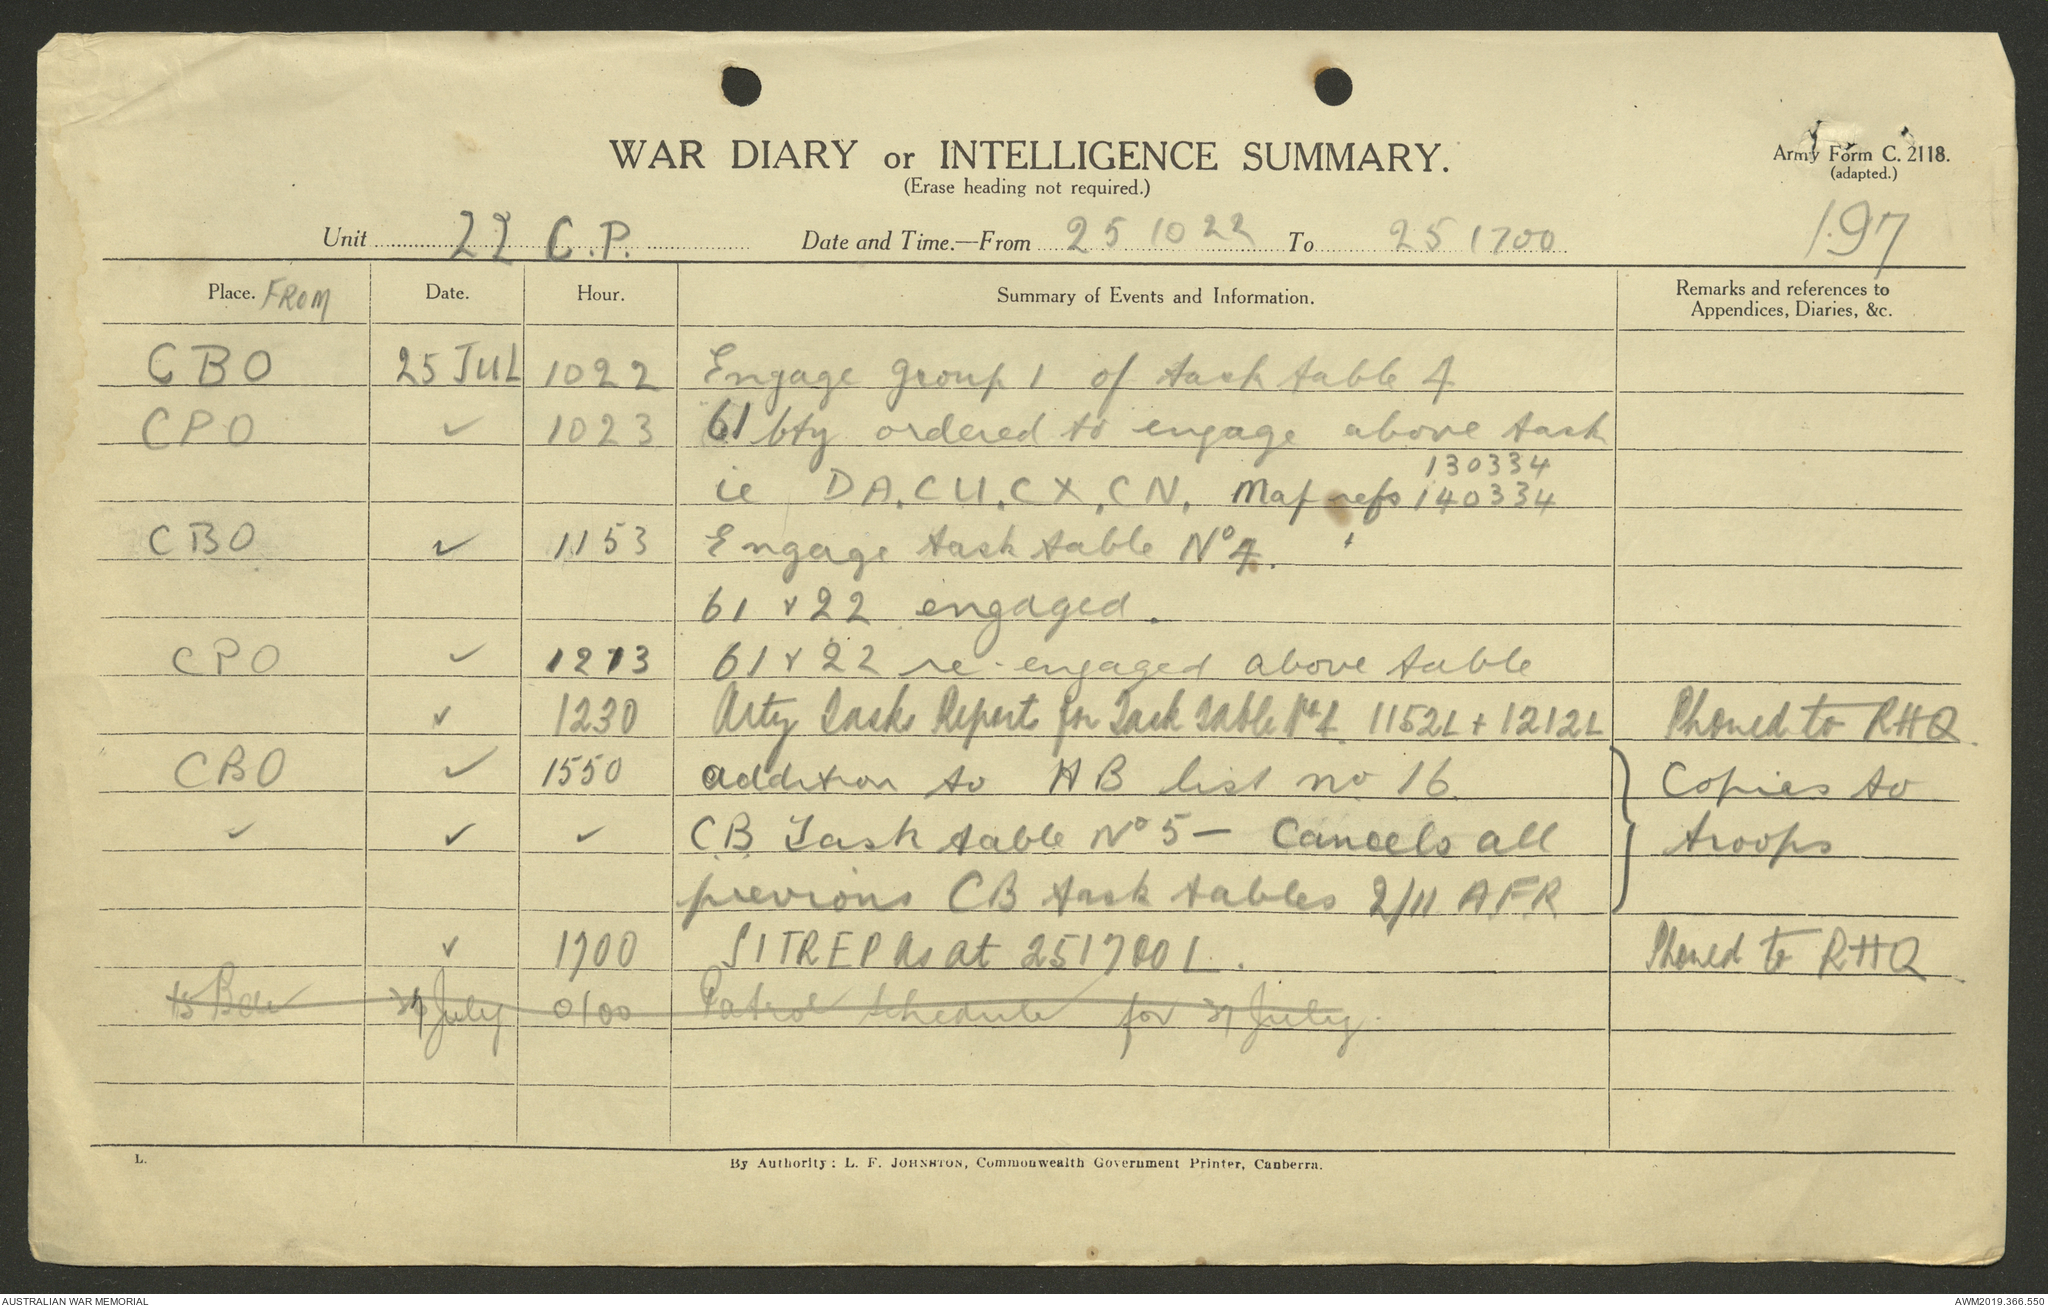 WAR DIARY or INTELLIGENCE SUMMARY.
(Erase heading not required.)
Army Form C. 2118.
(adapted.)
197
Unit 22 C.P. Date and Time.—From 25 1022 To 25 1700
Place. FROM Date. Hour. Summary of Events and Information. Remarks and references to
Appendices, Diaries, &c.
CBO 25 JUL 1022 Engage group 1 of task table 4
CPO ✓ 1023 61 bty ordered to engage above task
130334
ie DA, CU, CX, CN, Map refs 140334
CBO ✓ 1153 Engage task table No 4.
61 + 22 engaged.
CPO ✓ 1213 61 + 22 re-engaged above table
✓ 1230 Arty Task Report for Task Table No 4 1152L + 1212L Phoned to RHQ.
CBO ✓ 1550 addition to HB list no 16 Copies to
✓ ✓ ✓ C.B. Task table No 5 — Cancels all troops
previous CB task tables 2/11 AFR
✓ 1700 SITREP as at 251700L. Phoned to RHQ
15 Bde July 0100 Patrol Schedule for July.
L. By Authority: L. F. JOHNSTON, Commonwealth Government Printer, Canberra.
AUSTRALIAN WAR MEMORIAL AWM2019.366.550